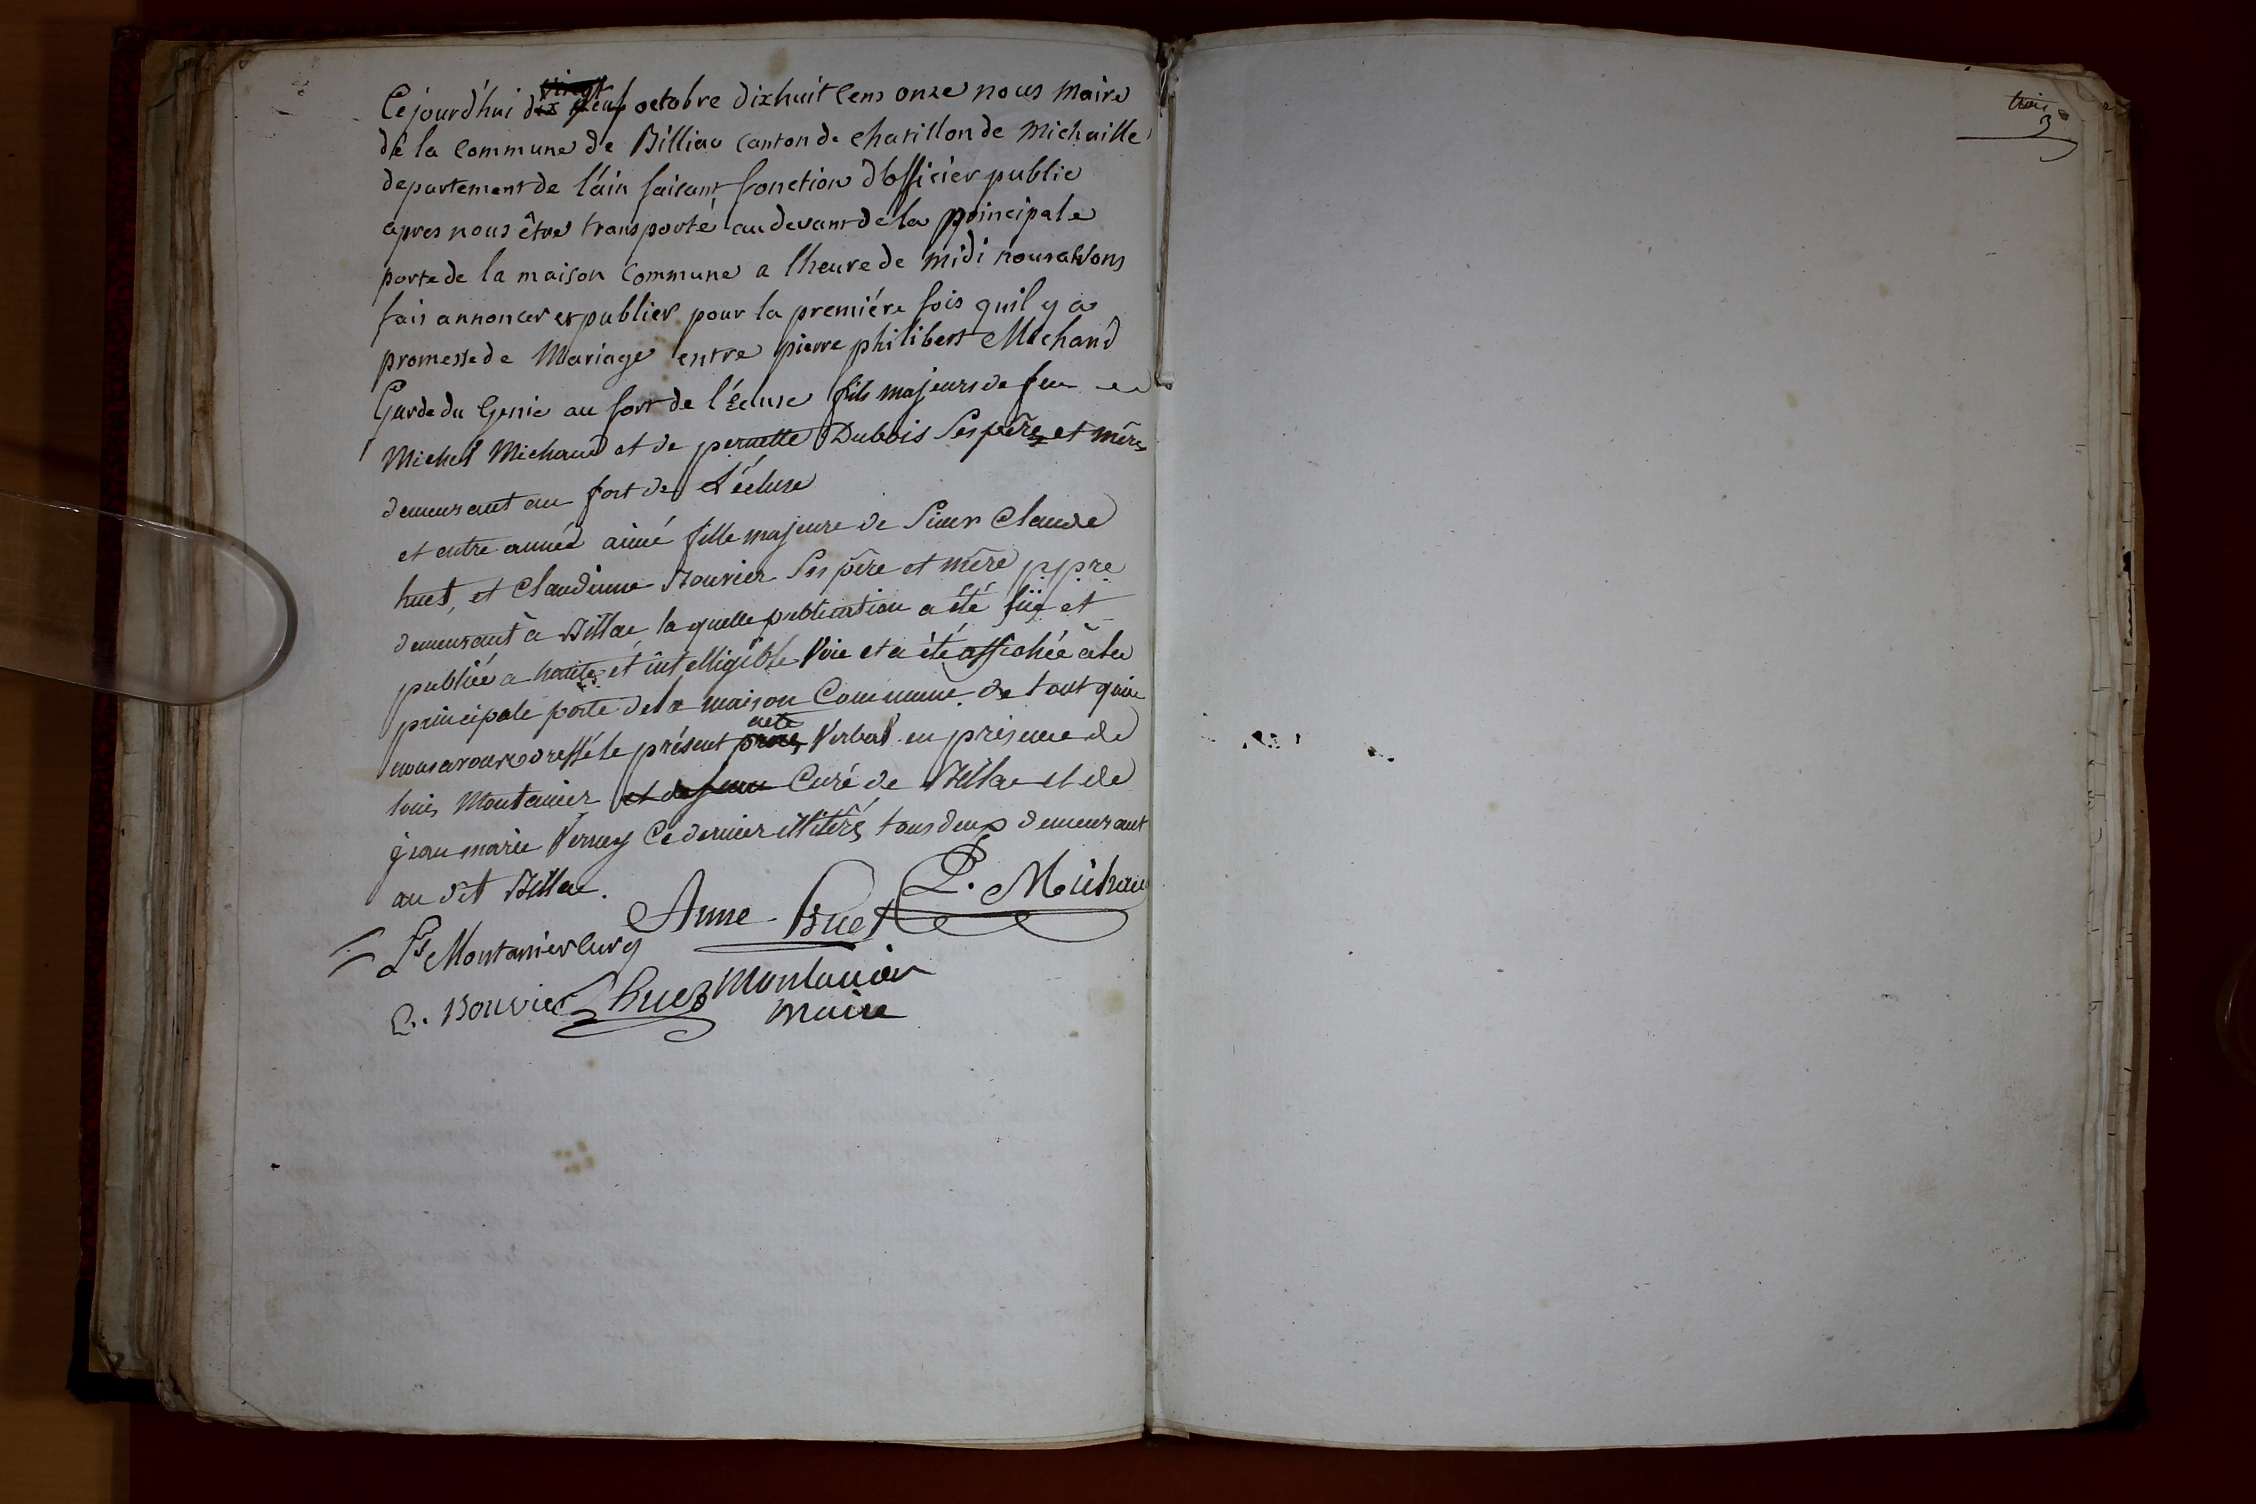 Cejourd'hui dix neuf octobre dixhuit cens onze nous Maire
de la Commune de Billiac canton de chatillon de Michaille
departement de l'ain faisant fonction d'officier public
apres nous être transporté audevant de la principale
porte de la maison Commune a l'heure de midi nous avons
fait annoncer et publier pour la premiére fois quil y a
promesse de Mariage entre pierre philibert Michaud
Garde du Genie au fort de l'écluse fils majeurs de feu
Michel Michaud et de pernette Dubois Ses père et mère
demeurant au fort de L'écluse
et entre année aimé fille majeure de Sieur Claude
huet, et Claudinne Bouvier Ses père et mère ppre
demeurant à Billac la quelle publication a été lüe et
publiée a haute et intelligible Voie et a été affichée à la
principale porte de la maison Commune. de tout quoi
nous avons dressé le présent procès acte Verbal en présence de
louis Montanier et de jean Curé de Billac et de
jean marie Verney Ce dernier illitéré, tous deux demeurant
au dit Billac.
P. Michaud
Anne Huet
Montanier Curé
C. Bouvier Chuet Montanier
maire
trois
3